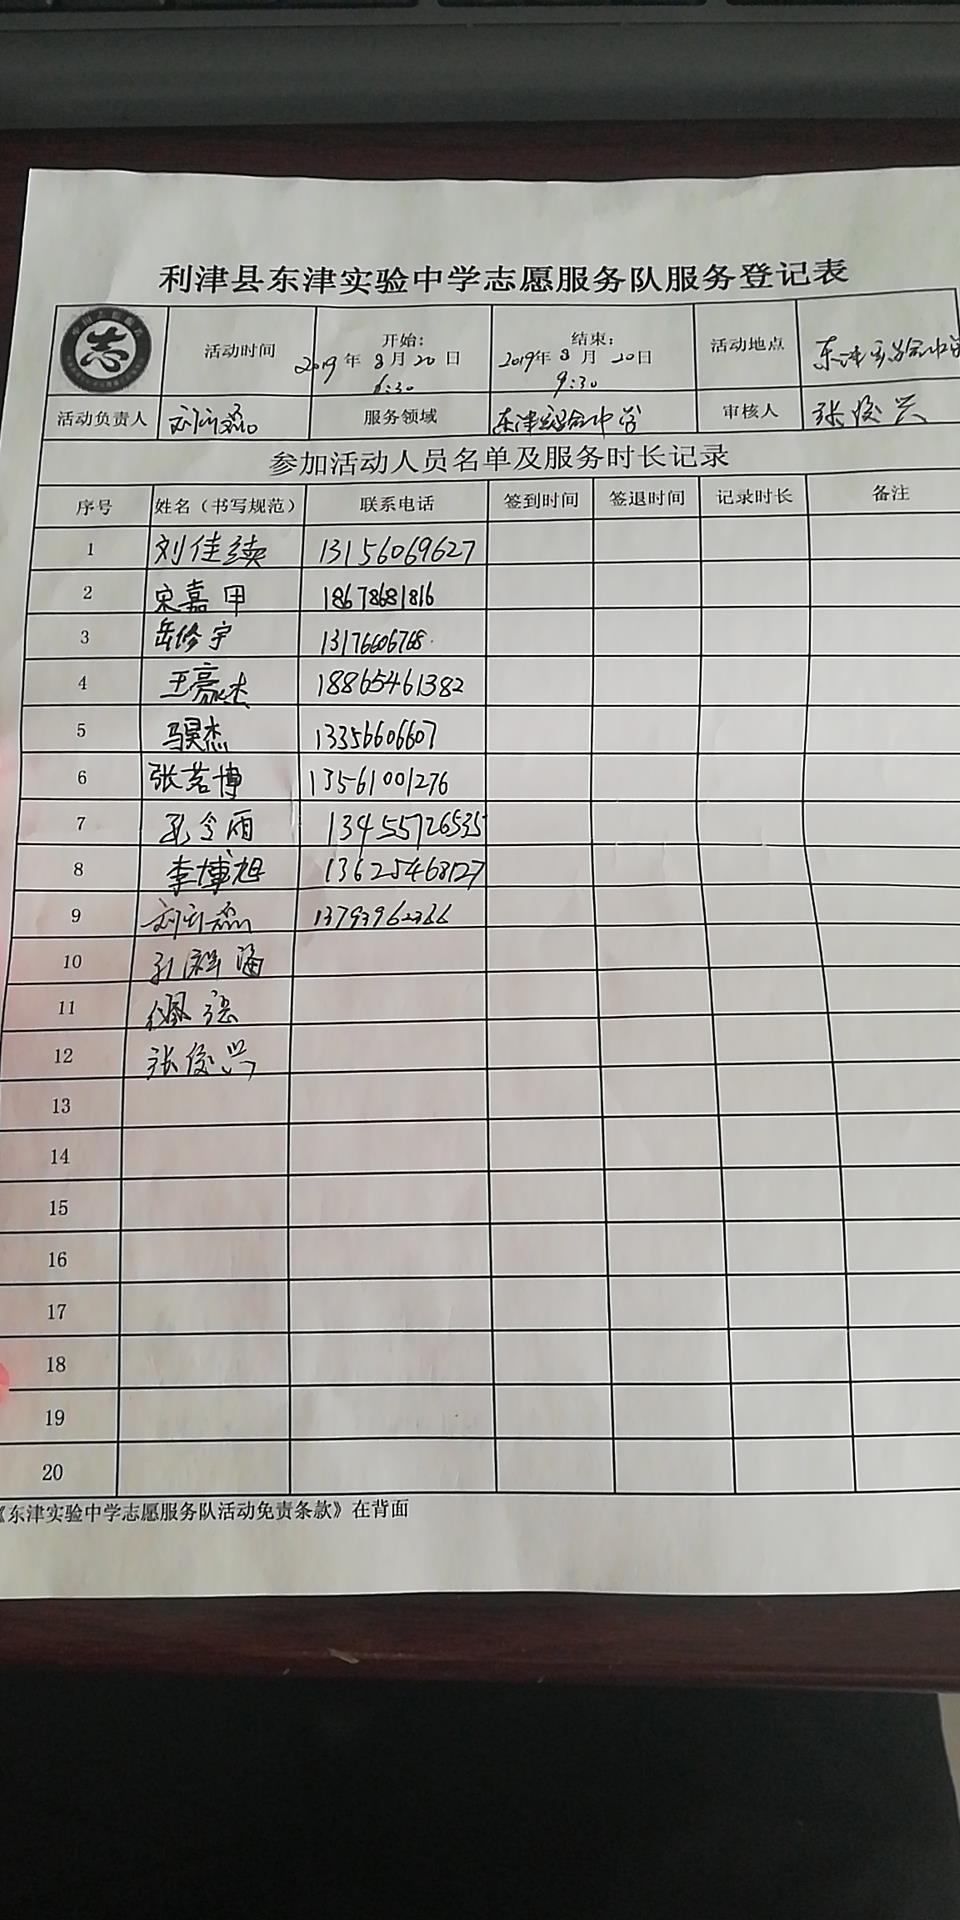 利津县东津实验中学志愿服务队服务登记表
志 活动时间 开始: 2019年8月20日 6:30 结束: 2019年8月20日 9:30 活动地点 东津实验中学
活动负责人 服务领域 东津实验中学 审核人 张俊兴
参加活动人员名单及服务时长记录
序号 姓名（书写规范） 联系电话 签到时间 签退时间 记录时长 备注
1 刘佳续 13156069627
2 宋嘉甲 18678681816
3 岳修宇 13176606768
4 王豪杰 18865461382
5 骐杰 13356606607
6 张茗博 13561001276
7 孔令雨 13455726535
8 李博旭 13625468127
9 13793962366
10
11
12 张俊兴
13
14
15
16
17
18
19
20
《东津实验中学志愿服务队活动免责条款》在背面